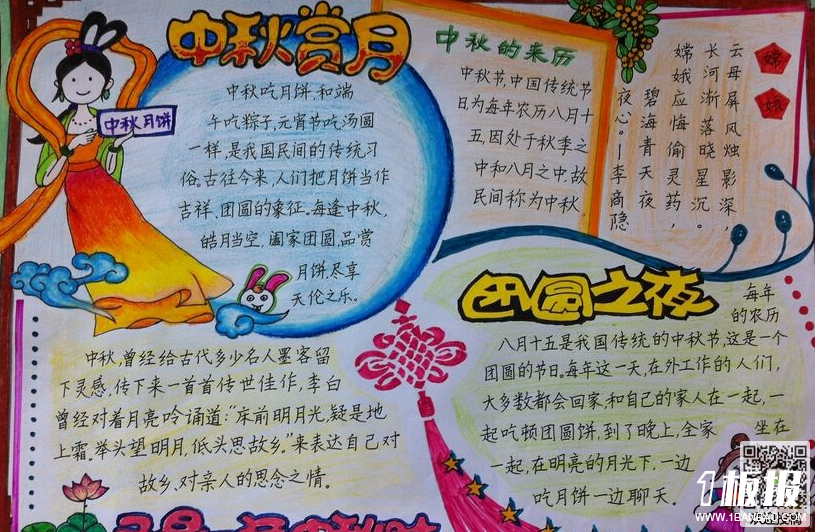 中秋赏月
中秋月饼
中秋吃月饼,和端
午吃粽子,元宵节吃汤圆
一样,是我国民间的传统习
俗。古往今来,人们把月饼当作
吉祥、团圆的象征。每逢中秋,
皓月当空,阖家团圆,品赏
月饼尽享
天伦之乐。
中秋的来历
中秋节,中国传统节
日为每年农历八月十
五,因处于秋季之
中和八月之中故
民间称为中秋
嫦娥
云母屏风烛影深,
长河渐落晓星沉。
嫦娥应悔偷灵药,
碧海青天夜
夜心。—李商隐
团圆之夜
每年
的农历
八月十五是我国传统的中秋节,这是一个
团圆的节日。每年这一天,在外工作的人们,
大多数都会回家,和自己的家人在一起,一
起吃顿团圆饼,到了晚上,全家坐在
一起,在明亮的月光下,一边
吃月饼一边聊天.
中秋,曾经给古代多少名人墨客留
下灵感,传下来一首首传世佳作,李白
曾经对着月亮吟诵道:“床前明月光,疑是地
上霜。举头望明月,低头思故乡。”来表达自己对
故乡、对亲人的思念之情。
1板报
WWW.1BANBAO.COM